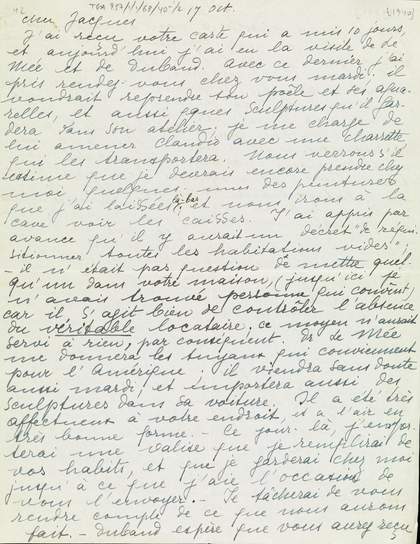 TGA 952/1/1/69/40-1/2 17 oct. [1940]
cher Jacques
J'ai reçu votre carte qui a mis 10 jours,
et aujourd'hui j'ai eu la visite de de
Mée et de Duband. Avec ce dernier j'ai
pris rendez-vous chez vous mardi : il
voudrait reprendre son poële et ses aqua-
relles, et aussi ques sculptures qu'il gar-
dera dans son atelier, je me charge de
lui amener Claudis avec une charrette
qui les transportera. Nous verrons s'il
estime que je devrais encore prendre chez
moi quelques unes des peintures
que j'ai laissées là-bas, et nous irons à la
cave voir les caisses. J'ai appris par
avance qu'il y aurait un décret "de réqui-
sitionner toutes les habitations vides",
- il n'était pas question de mettre quel-
qu'un dans votre maison, (jusqu'ici je
n'avais trouvé personne qui convint)
car il s'agit bien de contrôler l'absence
du véritable locataire, ce moyen n'aurait
servi à rien, par conséquent. Mr de Mée
me donnera les tuyaux qui conviennent
pour l'Amérique ; il viendra sans doute
aussi mardi, et emportera aussi des
sculptures dans sa voiture. Il a été très
affectueux à votre endroit, il a l'air en
très bonne forme. - Ce jour là, j'empor-
terai une valise que je remplirai de
vos habits, et que je garderai chez moi
jusqu'à ce que j'aie l'occasion de
vous l'envoyer. - Je tâcherai de vous
rendre compte de ce que nous aurons
fait. - Duband espère que vous aurez reçu